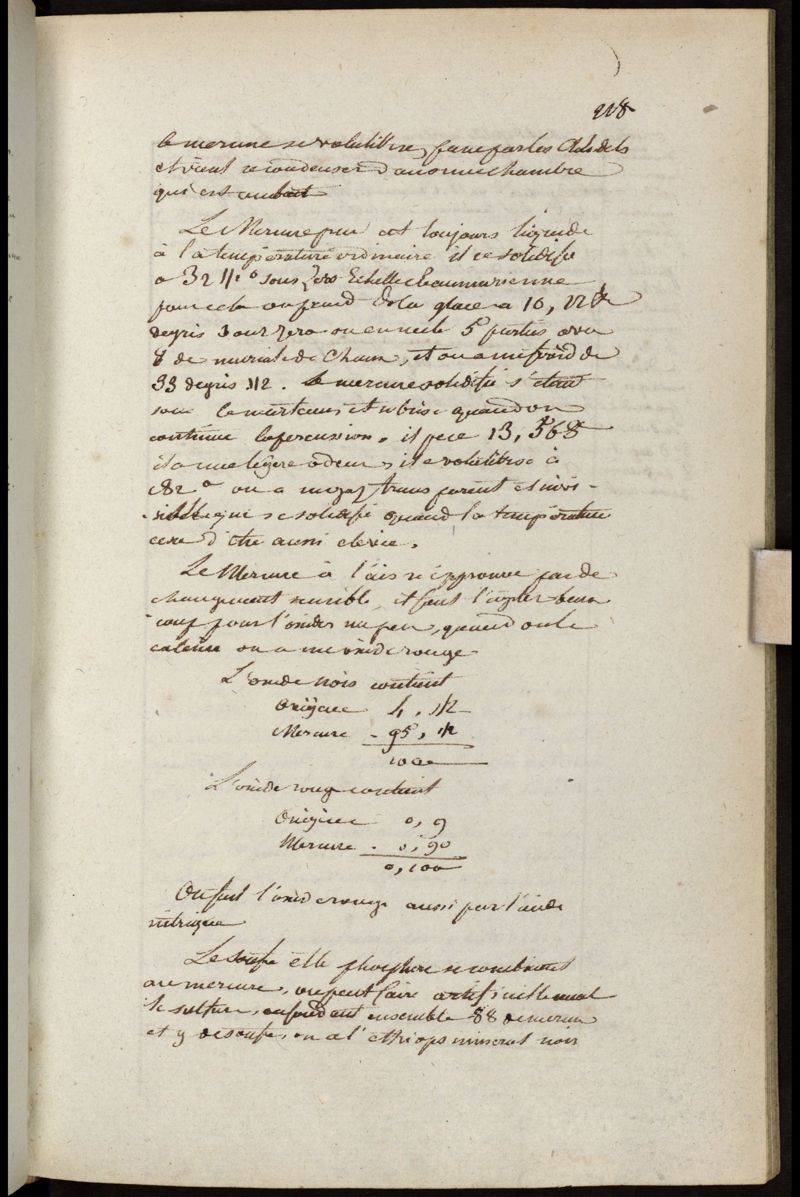 228
le mercure se volatilise, passe par les Aludels
et vient se condenser dans une chambre
qui est au bout
Le Mercure pur est toujours liquide
à la température ordinaire il se solidifie
a 32 ° sous Zero Echelle Reaumurienne
pour cela on prend de la glace a
degrés sous Zero on en mele 5 parties avec
8 de muriate de Chaux, et on a un froid de
33 degrés 1/2. Le mercure solidifié s'etend
sous le marteau et se brise quand on
continue la percussion. il pese 13, 568
il a une légère odeur, il se volatilise à
on a un gaz transparent et invi-
-sible que se solidifie quand la température
cesse d'etre aussi elevée.
Le Mercure à l'air n'éprouve pas de
changement sensible, il faut l'agiter beau
coup pour l'oxider un peu, quand on le
calcine on a un oxide rouge
L'oxide noir contient
Oxigene 4, 1/2
Mercure - 95, 1/2
100
L'oxide rouge contient
Oxigene 0, 9
Mercure - 0, 90
0, 100
On fait l'oxide rouge aussi par l'acide
nitrique
Le soufre et le phosphore se combinent
au mercure, on peut faire artificiellement
le sulfure, en fondant ensemble 88 de mercure
et de soufre, on a l'ethiops mineral noir